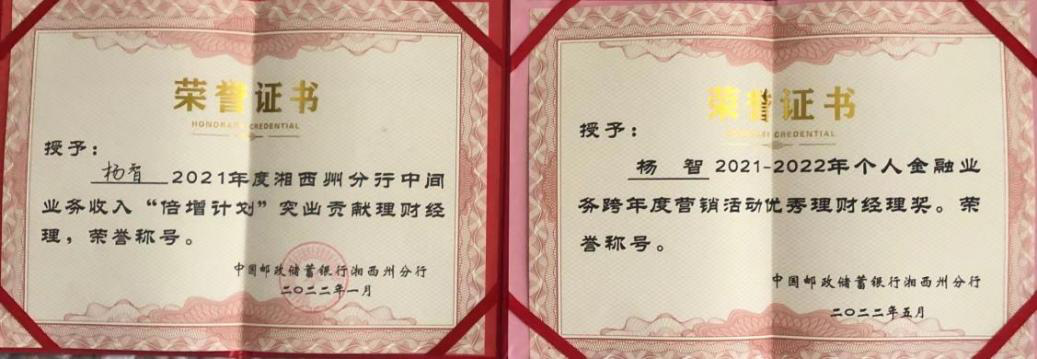 荣誉证书
HONORARY CREDENTIAL
授予：
杨智 2021年度湘西州分行中间
业务收入“倍增计划”突出贡献理财经
理，荣誉称号。
中国邮政储蓄银行湘西州分行
二〇二二年一月
荣誉证书
CREDENTIAL
授予：
杨 智 2021-2022年个人金融业
务跨年度营销活动优秀理财经理奖。荣
誉称号。
中国邮政储蓄银行湘西州分行
二〇二二年五月